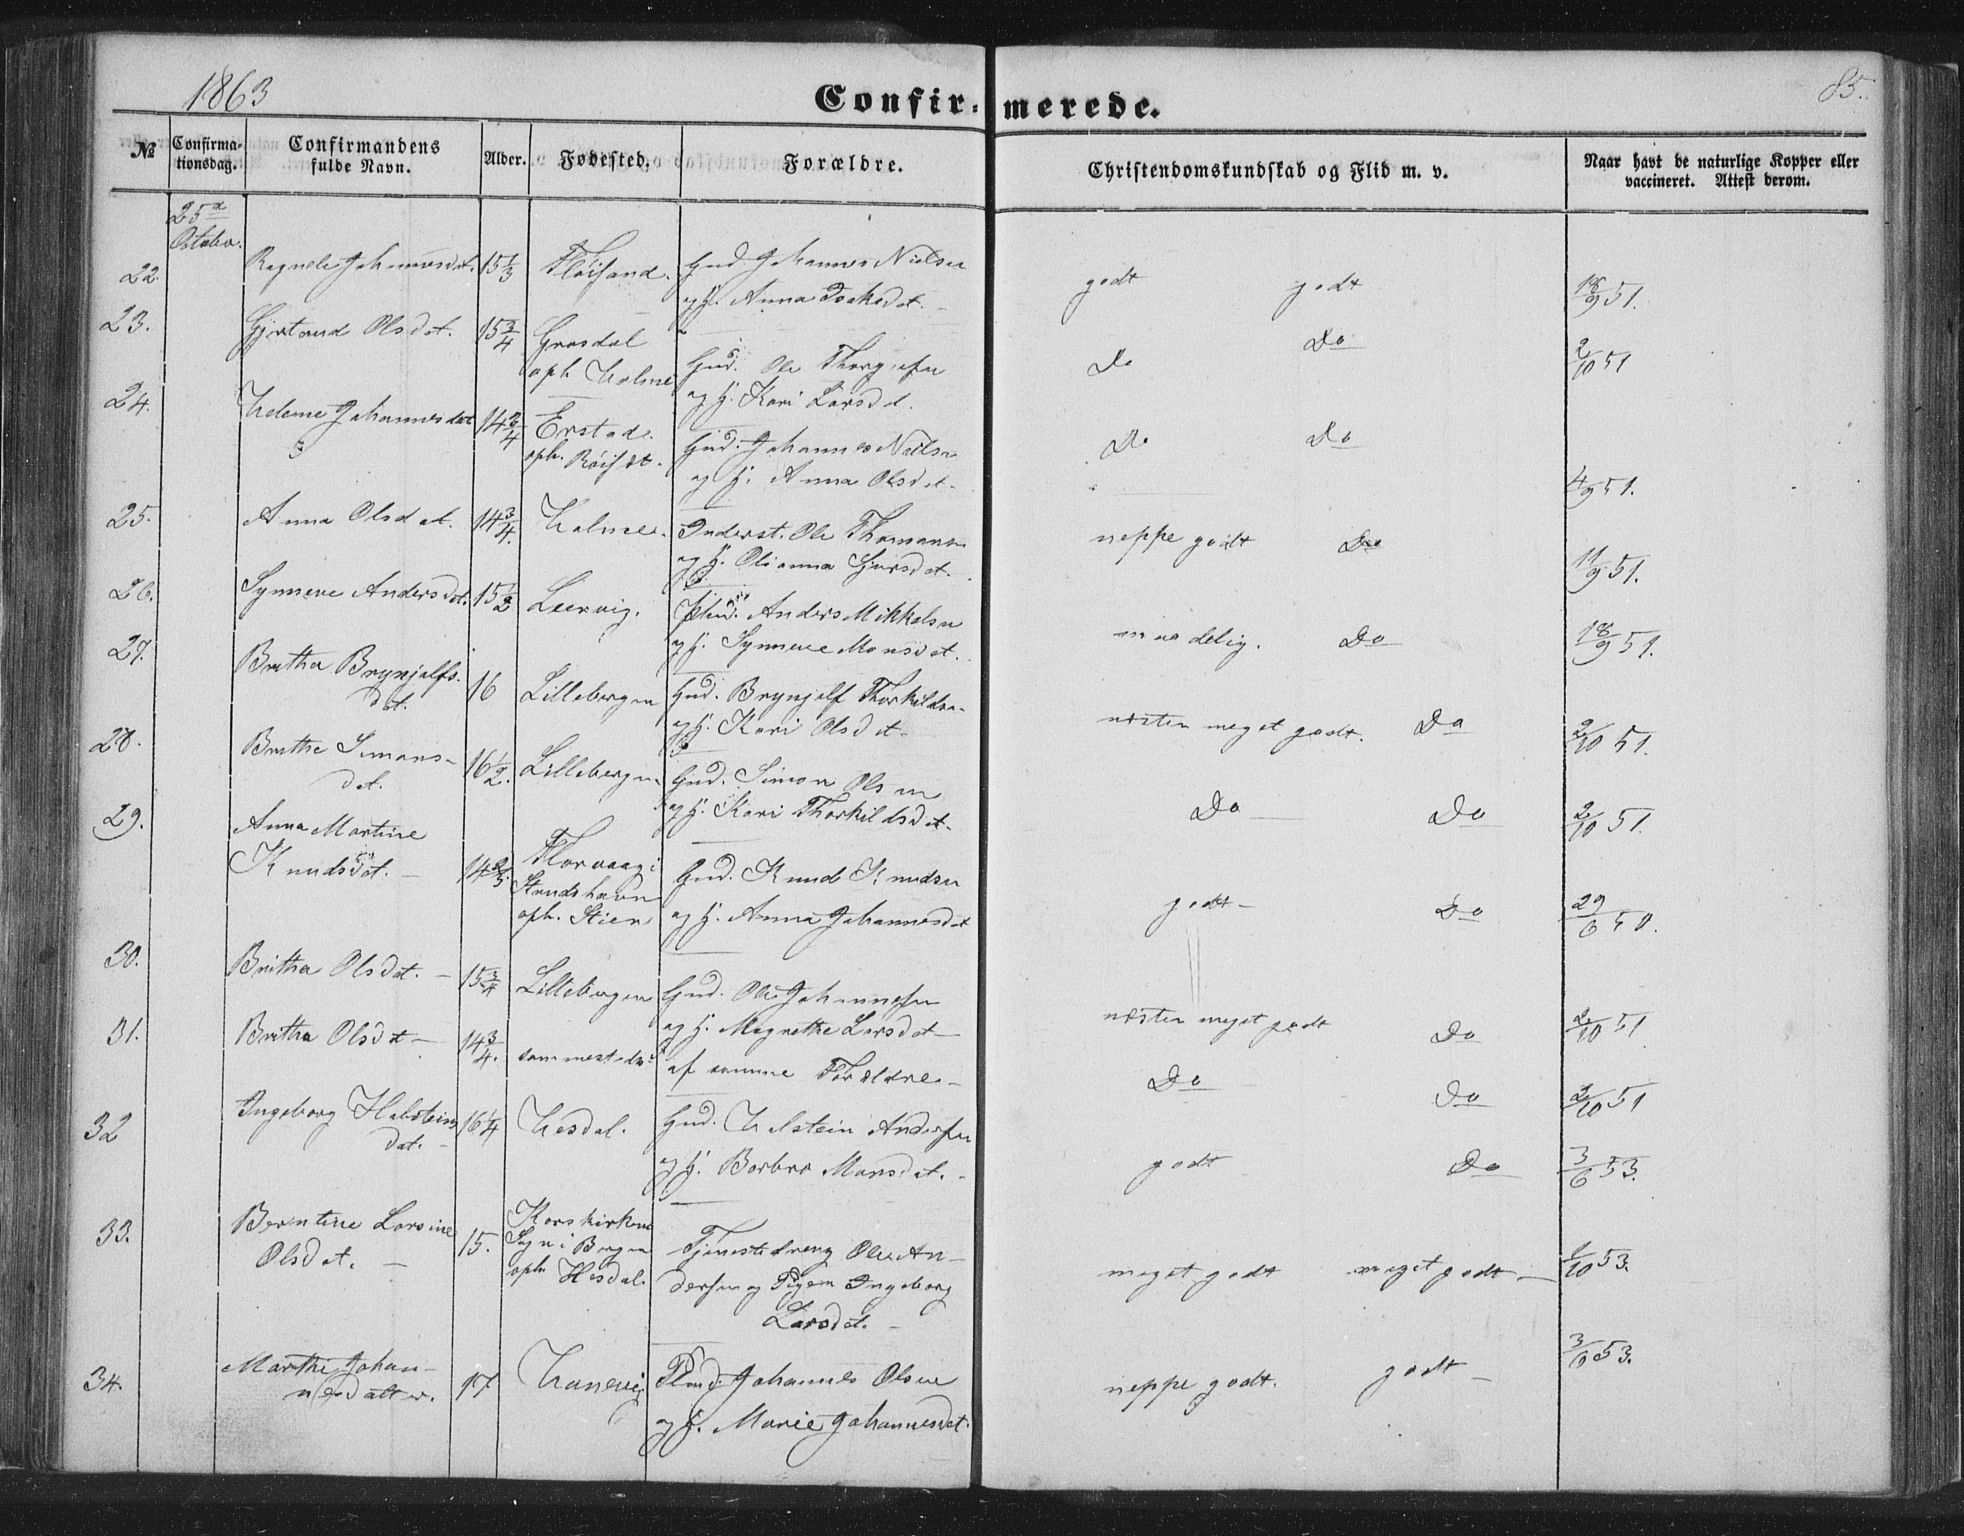 1863
Confirmerede.
85.
№
Confirmationsdag.
Confirmandens fulde Navn.
Alder.
Fødested.
Forældre.
Christendomskundskab og Flid m. v.
Naar havt de naturlige Kopper eller vaccineret. Attest derom.
25d
Octobr.
22. Ragnele Johannesdat. 15 1/3 Gmd. Johannes Nielsen
og H. Anna Isaksdat.
godt godt 18/9 51.
23. Gjertrud Olsdat. 15 3/4 Grasdal
oph. Holme
Gmd. Ole
og H. Kari Larsd.
Do Do 2/10 51
24. Helene Johannesdat 14 3/4 Erstad.
oph.
Gmd. Johannes Nielsen
og H. Anna Olsdat.
Do Do 4/9 51.
25. Anna Olsdat. 14 3/4. Holme. Inderst. Ole Thomasen
og H. Olianna
neppe godt Do 11/9 51.
26. Synneve Andersdat. 15 1/2 Leervig. Anders Mikkelsen
og H. Synneve Monsdat.
maadelig. Do 18/9 51.
27. Brithe Brynjelfs-
dat. 16 Lillebergen Gmd. Brynjelf Thorkildsen
og H. Kari Olsdat.
næsten meget godt. Do 2/10 51.
28. Brithe Simons-
dat. 16 1/2. Lillebergen Gmd. Simon Olsen
og H. Kari Thorkildsdat.
Do Do 2/10 51.
29. Anna Martine
Knudsdat. 14 2/3. Florvaag i
Strudshavn
oph. Stien
Gmd. Knud Knudsen
og H. Anna Johannesdat
godt Do 29/6 50.
30. Britha Olsdat. 15 3/4 Lillebergen Gmd. Ole Johannesen
og H. Magnethe Larsdat
næsten meget godt Do 2/10 51
31. Britha Olsdat 14 3/4. sammesteds af samme Forældre
Do Do 2/10 51
32 Ingeborg Halsteins
dat. 16 1/4 Hesdal. Gmd. Halstein Andersen
og H. Barbro Monsdat.
godt Do 3/6 53.
33. Berntine Larsine
Olsdat. 15. Korskirkens
Sogn i Bergen
oph. Hesdal.
Tjenestedreng Ole An-
dersen og Pigen Ingeborg
Larsdat.
meget godt meget godt 1/10 53.
34. Marthe Johan-
nesdatter. 17 Hanevig Plmd. Johannes Olsen
og H. Marie Johannesdat.
neppe godt. godt 3/6 53.